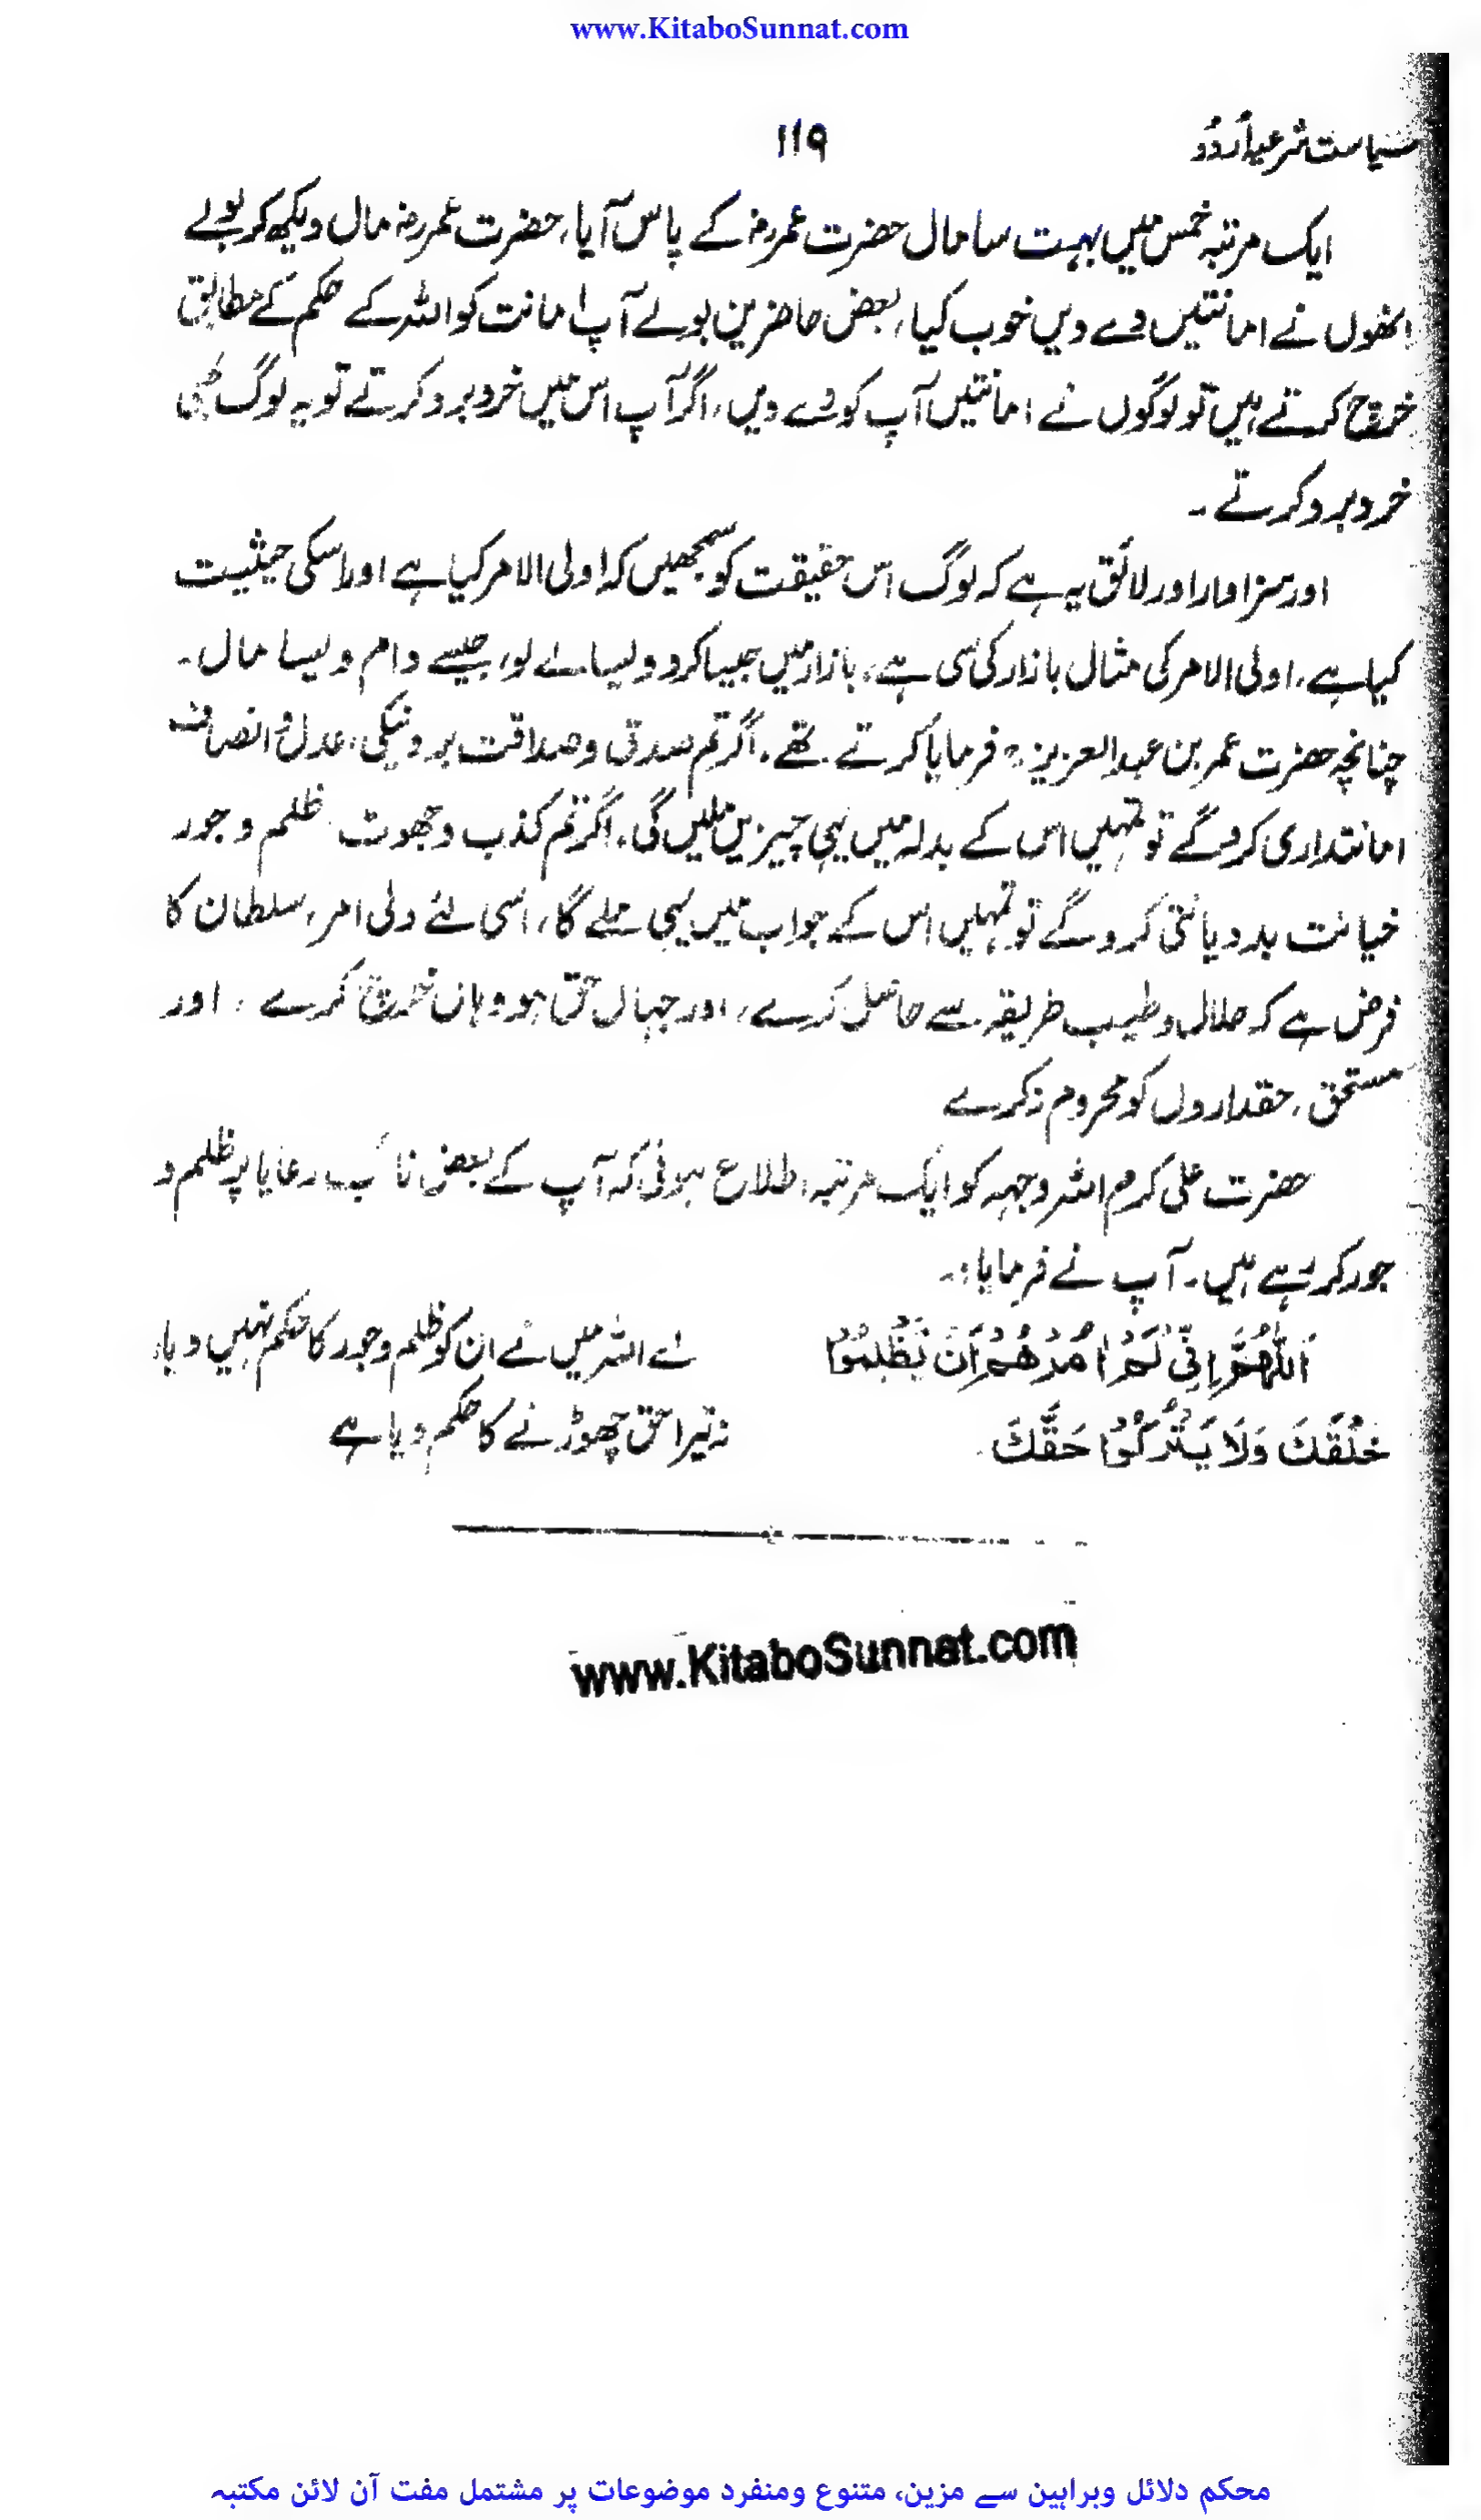 www.KitaboSunnat.com
سیاست شرعیہ اُردُو
۱۱۹
ایک مرتبہ خمس میں بہت سا مال حضرت عمر رضہ کے پاس آیا، حضرت عمر رضہ مال دیکھ کر بولے
انھوں نے امانتیں دے دیں خوب کیا، بعض حاضرین بولے آپ امانت کو اللہ کے حکم کے مطابق
خرچ کرتے ہیں تو لوگوں نے امانتیں آپ کو دے دیں، اگر آپ اس میں خرد برد کرتے تو یہ لوگ بھی
خرد برد کرتے ۔
اور سزاوار اور لائق یہ ہے کہ لوگ اس حقیقت کو سمجھیں کہ اولی الامر کیا ہے اور اسکی حیثیت
کیا ہے، اولی الامر کی مثال بازار کی سی ہے، بازار میں جیسا کرو ویسا لے لو، جیسے دام ویسا مال ۔
چنانچہ حضرت عمر بن عبد العزیز رح فرمایا کرتے تھے ۔ اگر تم صدق و صداقت برو نیکی، عدل و انصاف
امانتداری کرو گے تو تمہیں اس کے بدلہ میں یہی چیزیں ملیں گی ۔ اگر تم کذب و جھوٹ ظلم و جور
خیانت بددیانتی کرو گے تو تمہیں اس کے جواب میں یہی ملے گا، اسی لئے ولی امر، سلطان کا
فرض ہے کہ حلال و طیب طریقہ سے حاصل کرے، اور جہاں حق ہو وہاں خرچ کرے ، اور
مستحق، حقداروں کو محروم نہ کرے
حضرت علی کرم اللہ وجہہ کو ایک مرتبہ اطلاع ہوئی کہ آپ کے بعض نائب رعایا پر ظلم و
جور کر رہے ہیں ۔ آپ نے فرمایا :۔
اَللّٰهُمَّ اِنِّیْ لَمْ اٰمُرْهُمْ اَنْ یَّظْلِمُوْا
خَلْقَكَ وَلَا یَتْرُكُوْا حَقَّكَ
اے اللہ میں نے ان کو ظلم و جور کا حکم نہیں دیا،
نہ تیرا حق چھوڑنے کا حکم دیا ہے
www.KitaboSunnat.com
محکم دلائل وبراہین سے مزین، متنوع ومنفرد موضوعات پر مشتمل مفت آن لائن مکتبہ